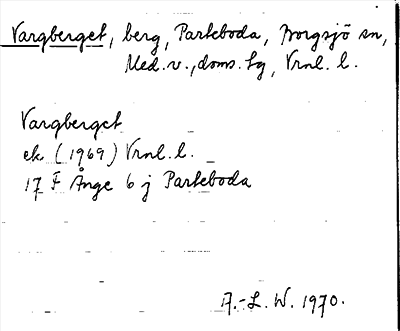 Vargberget, berg, Parteboda, Borgsjö sn,
Med. v., doms. tg, Vrnl. l.
Vargberget
ek (1969) Vrnl. l.
17 F Ånge 6 j Parteboda
A.-L. W. 1970.